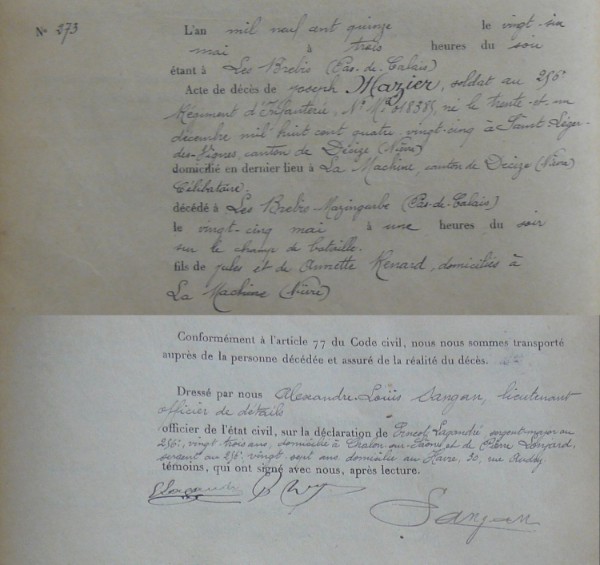 N° 273
L'an mil neuf cent quinze le vingt-six
mai à trois heures du soir
étant à Les Brebis (Pas-de-Calais)
Acte de décès de Joseph Mazier, soldat au 256e
Régiment d'Infanterie, N° Mle 018385, né le trente-et-un
décembre mil huit cent quatre-vingt-cinq à Saint Léger-
des-Vignes, canton de Decize (Nièvre)
domicilié en dernier lieu à La Machine, canton de Decize (Nièvre)
Célibataire.
décédé à Les Brebis-Mazingarbe (Pas-de-Calais)
le vingt-cinq mai à une heures du soir
sur le champ de bataille.
fils de Jules et de Annette Renard, domiciliés à
La Machine (Nièvre)
Conformément à l'article 77 du Code civil, nous nous sommes transporté
auprès de la personne décédée et assuré de la réalité du décès.
Dressé par nous Alexandre-Louis Sanjan, lieutenant
officier de détails
officier de l'état civil, sur la déclaration de Ernest sergent-major au
256e, vingt-trois ans, domicilié à Chalon-sur-Saône et de Pierre
sergent au 256e vingt sept ans domicilié au Havre, 30, rue
témoins, qui ont signé avec nous, après lecture.
Sanjan